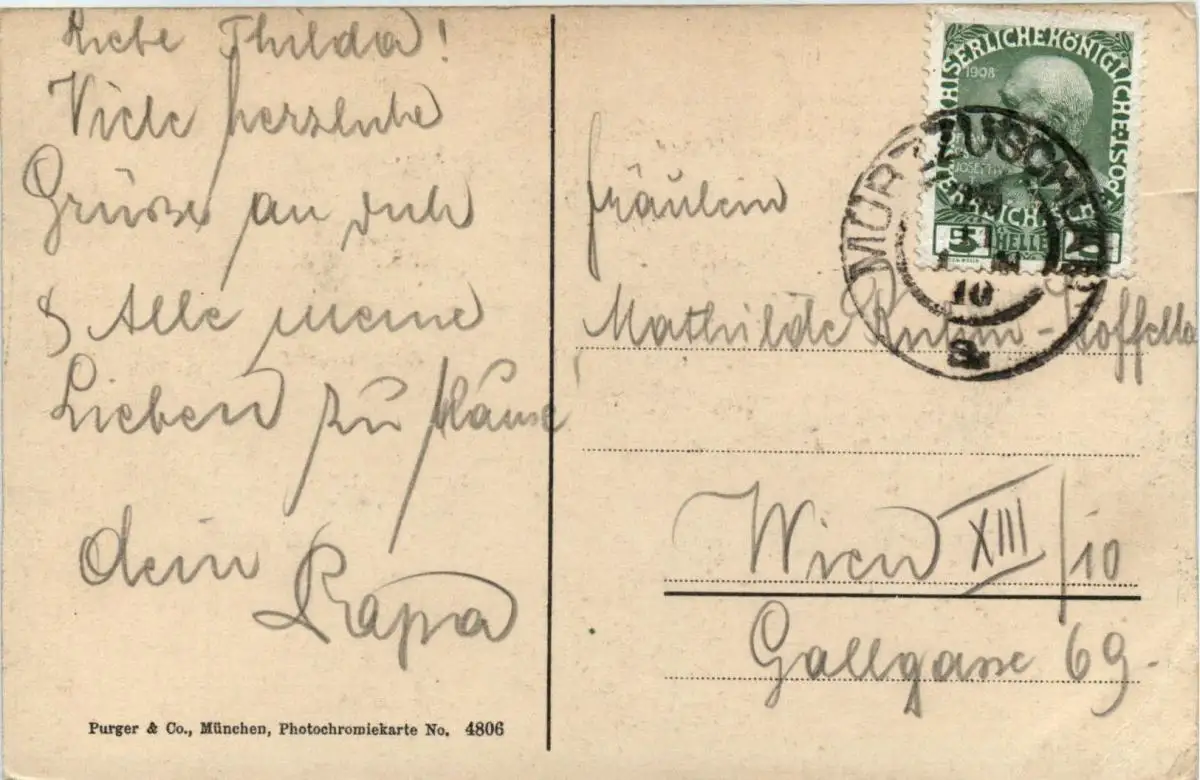 Liebe Thilda!
Viele herzliche
Grüsse an dich
& Alle meine
Lieben zu Hause
dein
Papa
Purger & Co., München, Photochromiekarte No. 4806
KAISERLICHE KÖNIGLICHE
1908
5 HELLER
MÜRZZUSCHLAG
10
Fräulein
Mathilde
Wien XIII/10
Gallgasse 69.